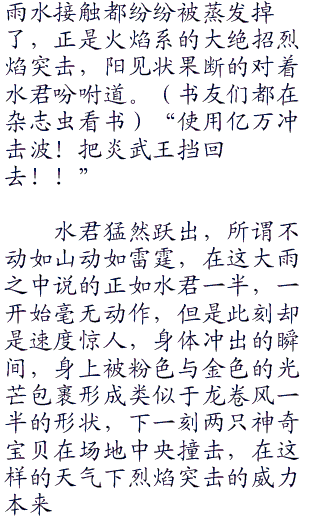 雨水接触都纷纷被蒸发掉
了，正是火焰系的大绝招烈
焰突击，阳见状果断的对着
水君吩咐道。（书友们都在
杂志虫看书）“使用亿万冲
击波！把炎武王挡回
去！！”
水君猛然跃出，所谓不
动如山动如雷霆，在这大雨
之中说的正如水君一半，一
开始毫无动作，但是此刻却
是速度惊人，身体冲出的瞬
间，身上被粉色与金色的光
芒包裹形成类似于龙卷风一
半的形状，下一刻两只神奇
宝贝在场地中央撞击，在这
样的天气下烈焰突击的威力
本来